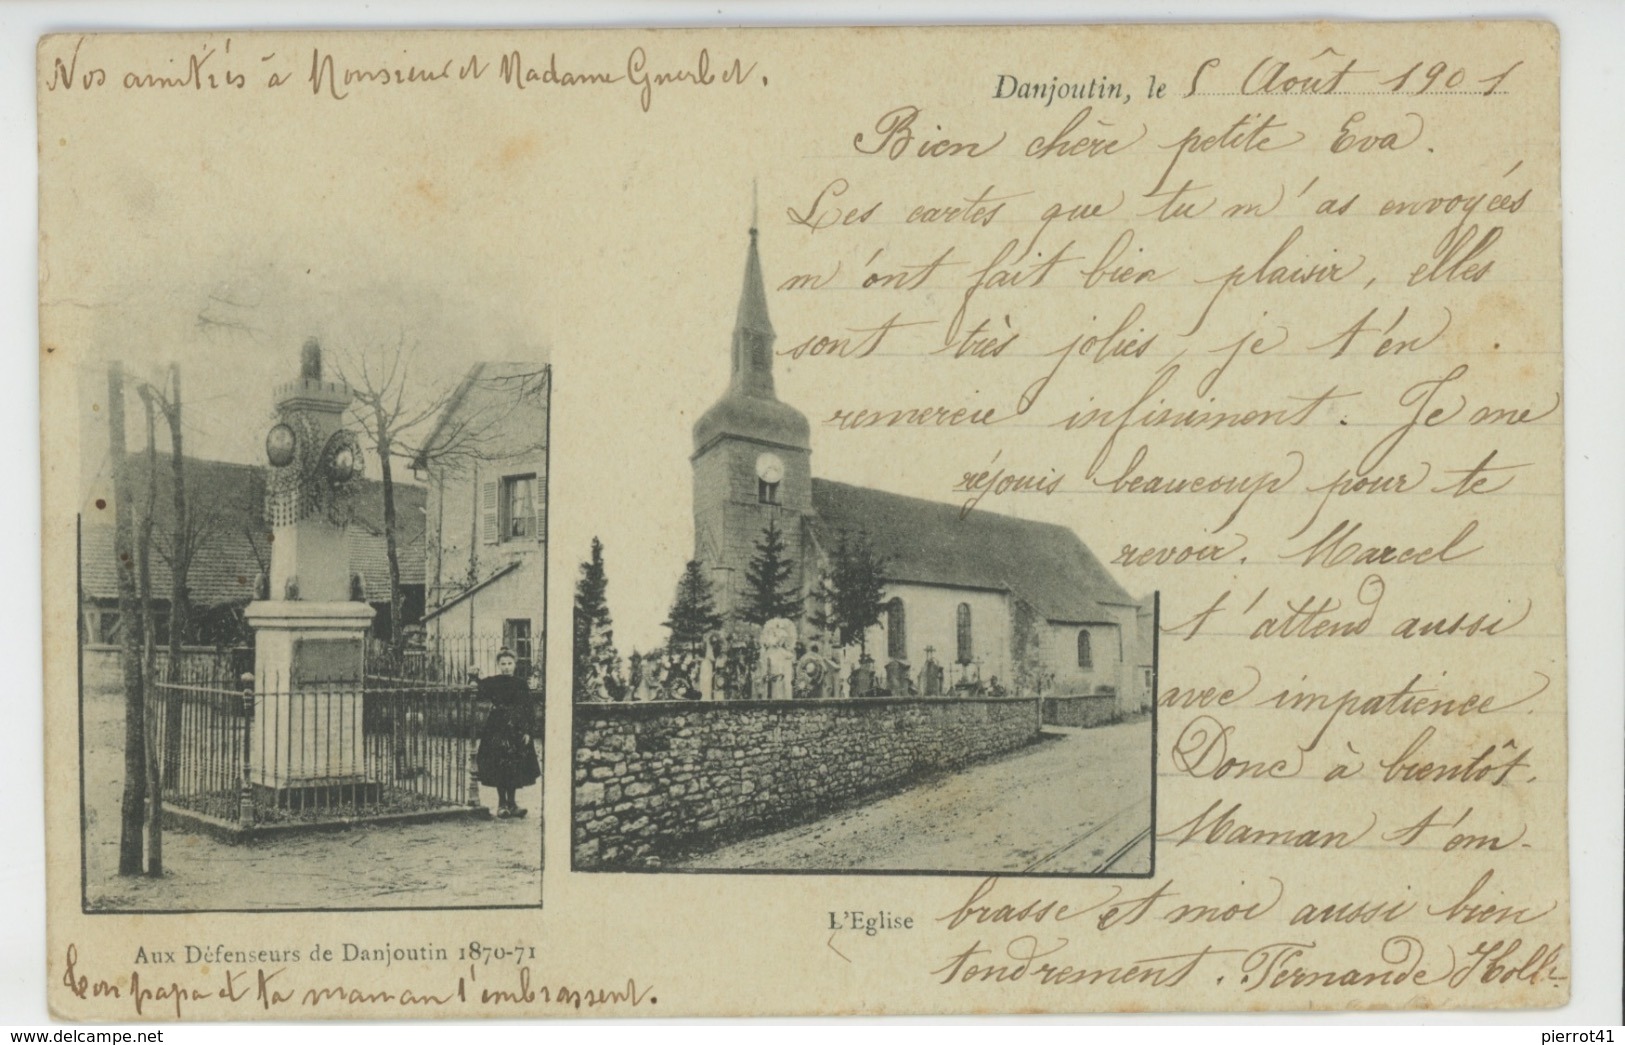 Nos amitiés à Monsieur et Madame Guerbet.
Danjoutin, le 5 Août 1901
Bien chère petite Eva.
Les cartes que tu m'as envoyées
m'ont fait bien plaisir, elles
sont très jolies, je t'en
remercie infiniment. Je me
réjouis beaucoup pour te
revoir. Marcel
t'attend aussi
avec impatience.
Donc à bientôt.
Maman t'em-
brasse et moi aussi bien
tendrement. Fernande Holl
L'Eglise
Aux Défenseurs de Danjoutin 1870-71
Ton papa et ta maman t'embrassent.
pierrot41